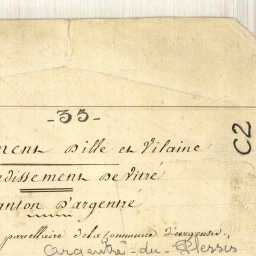 - 35 -
ment Dille et Vilaine
C2
dissement De Vitré
anton D'argentre
parcellaire de la Commune D'argentré,
Argentré-du-Plessis